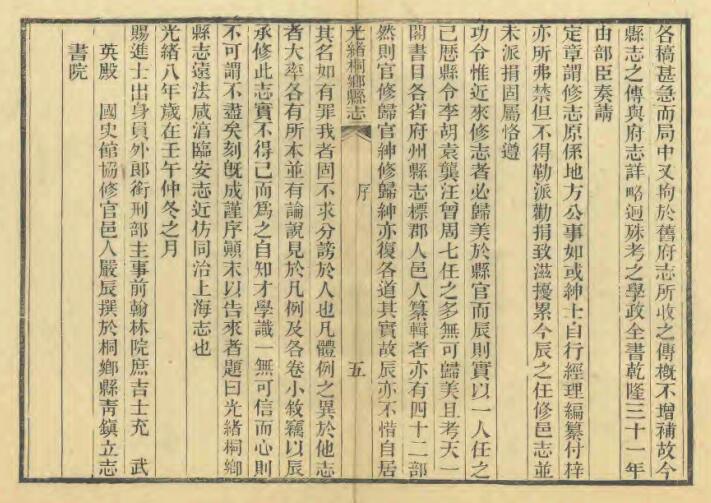 各稿甚急而局中又拘於舊府志所收之傳概不增補故今
縣志之傳與府志詳略迥殊考之學政全書乾隆三十一年
由部臣奏請
定章謂修志原係地方公事如或紳士自行經理編纂付梓
亦所弗禁但不得勒派勸捐致滋擾累今辰之任修邑志並
未派捐固屬恪遵
功令惟近來修志者必歸美於縣官而辰則實以一人任之
已歴縣令李胡袁龔汪曾周七任之多無可歸美且考天一
閣書目各省府州縣志標郡人邑人纂輯者亦有四十二部
然則官修歸官紳修歸紳亦復各道其實故辰亦不惜自居
光緒桐鄉縣志
序
五
其名如有罪我者固不求分謗於人也凡體例之異於他志
者大率各有所本並有論說見於凡例及各卷小敘竊以辰
承修此志實不得已而爲之自知才學識一無可信而心則
不可謂不盡矣刻旣成謹序顚末以告來者題曰光緒桐鄉
縣志遠法咸湻臨安志近仿同治上海志也
光緒八年歲在壬午仲冬之月
賜進士出身員外郎銜刑部主事前翰林院庶吉士充　武
英殿　國史館協修官邑人嚴辰撰於桐鄉縣靑鎭立志
書院